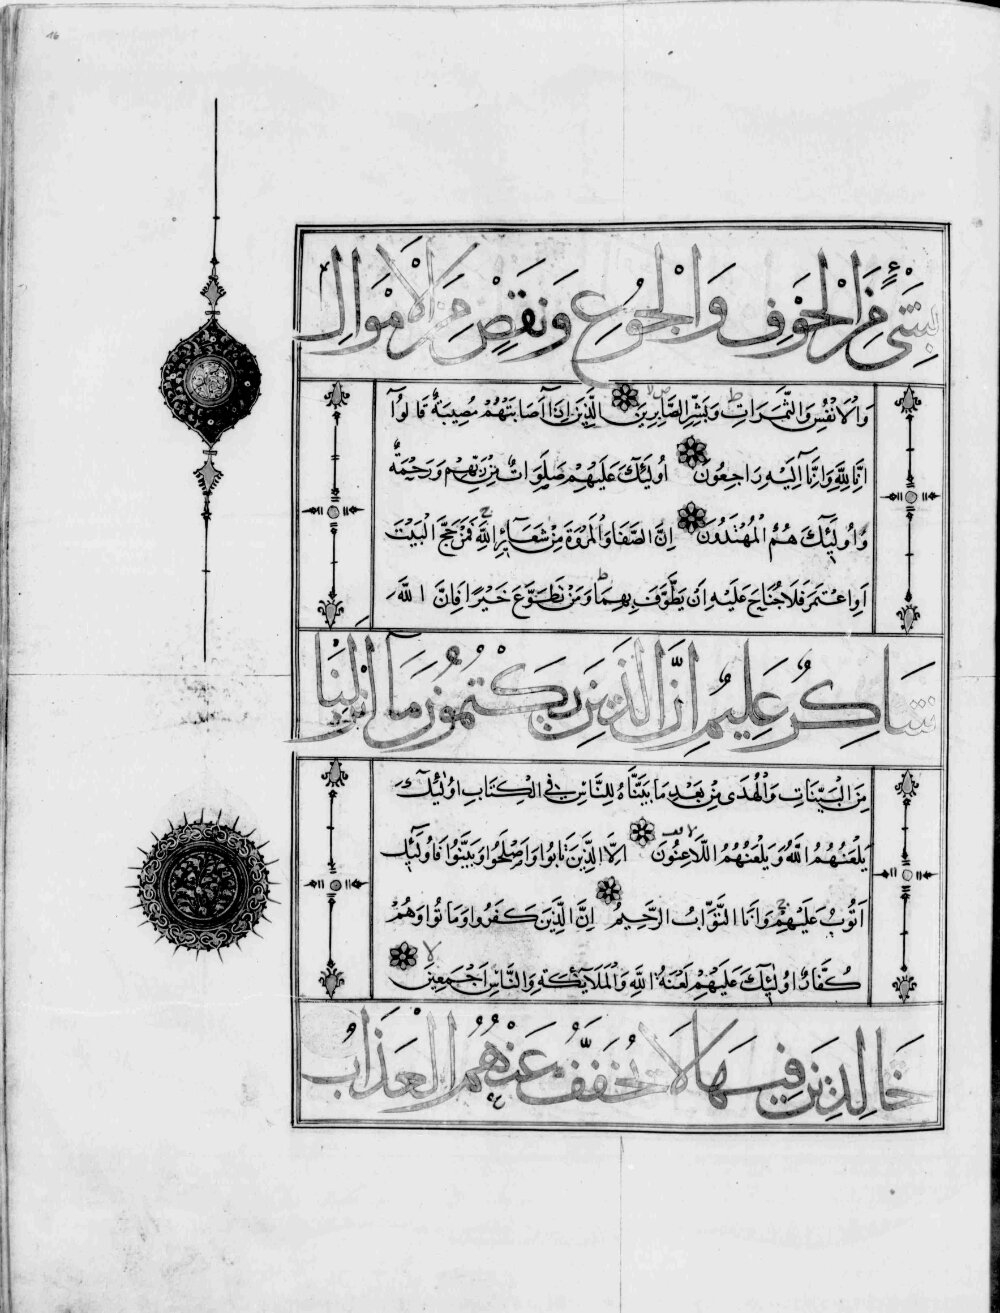 بِشَيْءٍ مِنَ الْخَوْفِ وَالْجُوعِ وَنَقْصٍ مِنَ الْأَمْوَالِ
وَالْأَنْفُسِ وَالثَّمَرَاتِ ط وَبَشِّرِ الصَّابِرِينَ لا الَّذِينَ إِذَا أَصَابَتْهُمْ مُصِيبَةٌ قَالُوا
إِنَّا لِلَّهِ وَإِنَّا إِلَيْهِ رَاجِعُونَ أُولَئِكَ عَلَيْهِمْ صَلَوَاتٌ مِنْ رَبِّهِمْ وَرَحْمَةٌ
وَأُولَئِكَ هُمُ الْمُهْتَدُونَ إِنَّ الصَّفَا وَالْمَرْوَةَ مِنْ شَعَائِرِ اللَّهِ ج فَمَنْ حَجَّ الْبَيْتَ
أَوِ اعْتَمَرَ فَلَا جُنَاحَ عَلَيْهِ أَنْ يَطَّوَّفَ بِهِمَا ط وَمَنْ تَطَوَّعَ خَيْرًا فَإِنَّ اللَّهَ
شَاكِرٌ عَلِيمٌ إِنَّ الَّذِينَ يَكْتُمُونَ مَا أَنْزَلْنَا
مِنَ الْبَيِّنَاتِ وَالْهُدَى مِنْ بَعْدِ مَا بَيَّنَّاهُ لِلنَّاسِ فِي الْكِتَابِ أُولَئِكَ
يَلْعَنُهُمُ اللَّهُ وَيَلْعَنُهُمُ اللَّاعِنُونَ لا إِلَّا الَّذِينَ تَابُوا وَأَصْلَحُوا وَبَيَّنُوا فَأُولَئِكَ
أَتُوبُ عَلَيْهِمْ ج وَأَنَا التَّوَّابُ الرَّحِيمُ إِنَّ الَّذِينَ كَفَرُوا وَمَاتُوا وَهُمْ
كُفَّارٌ أُولَئِكَ عَلَيْهِمْ لَعْنَةُ اللَّهِ وَالْمَلَائِكَةِ وَالنَّاسِ أَجْمَعِينَ لا
خَالِدِينَ فِيهَا لَا يُخَفَّفُ عَنْهُمُ الْعَذَابُ